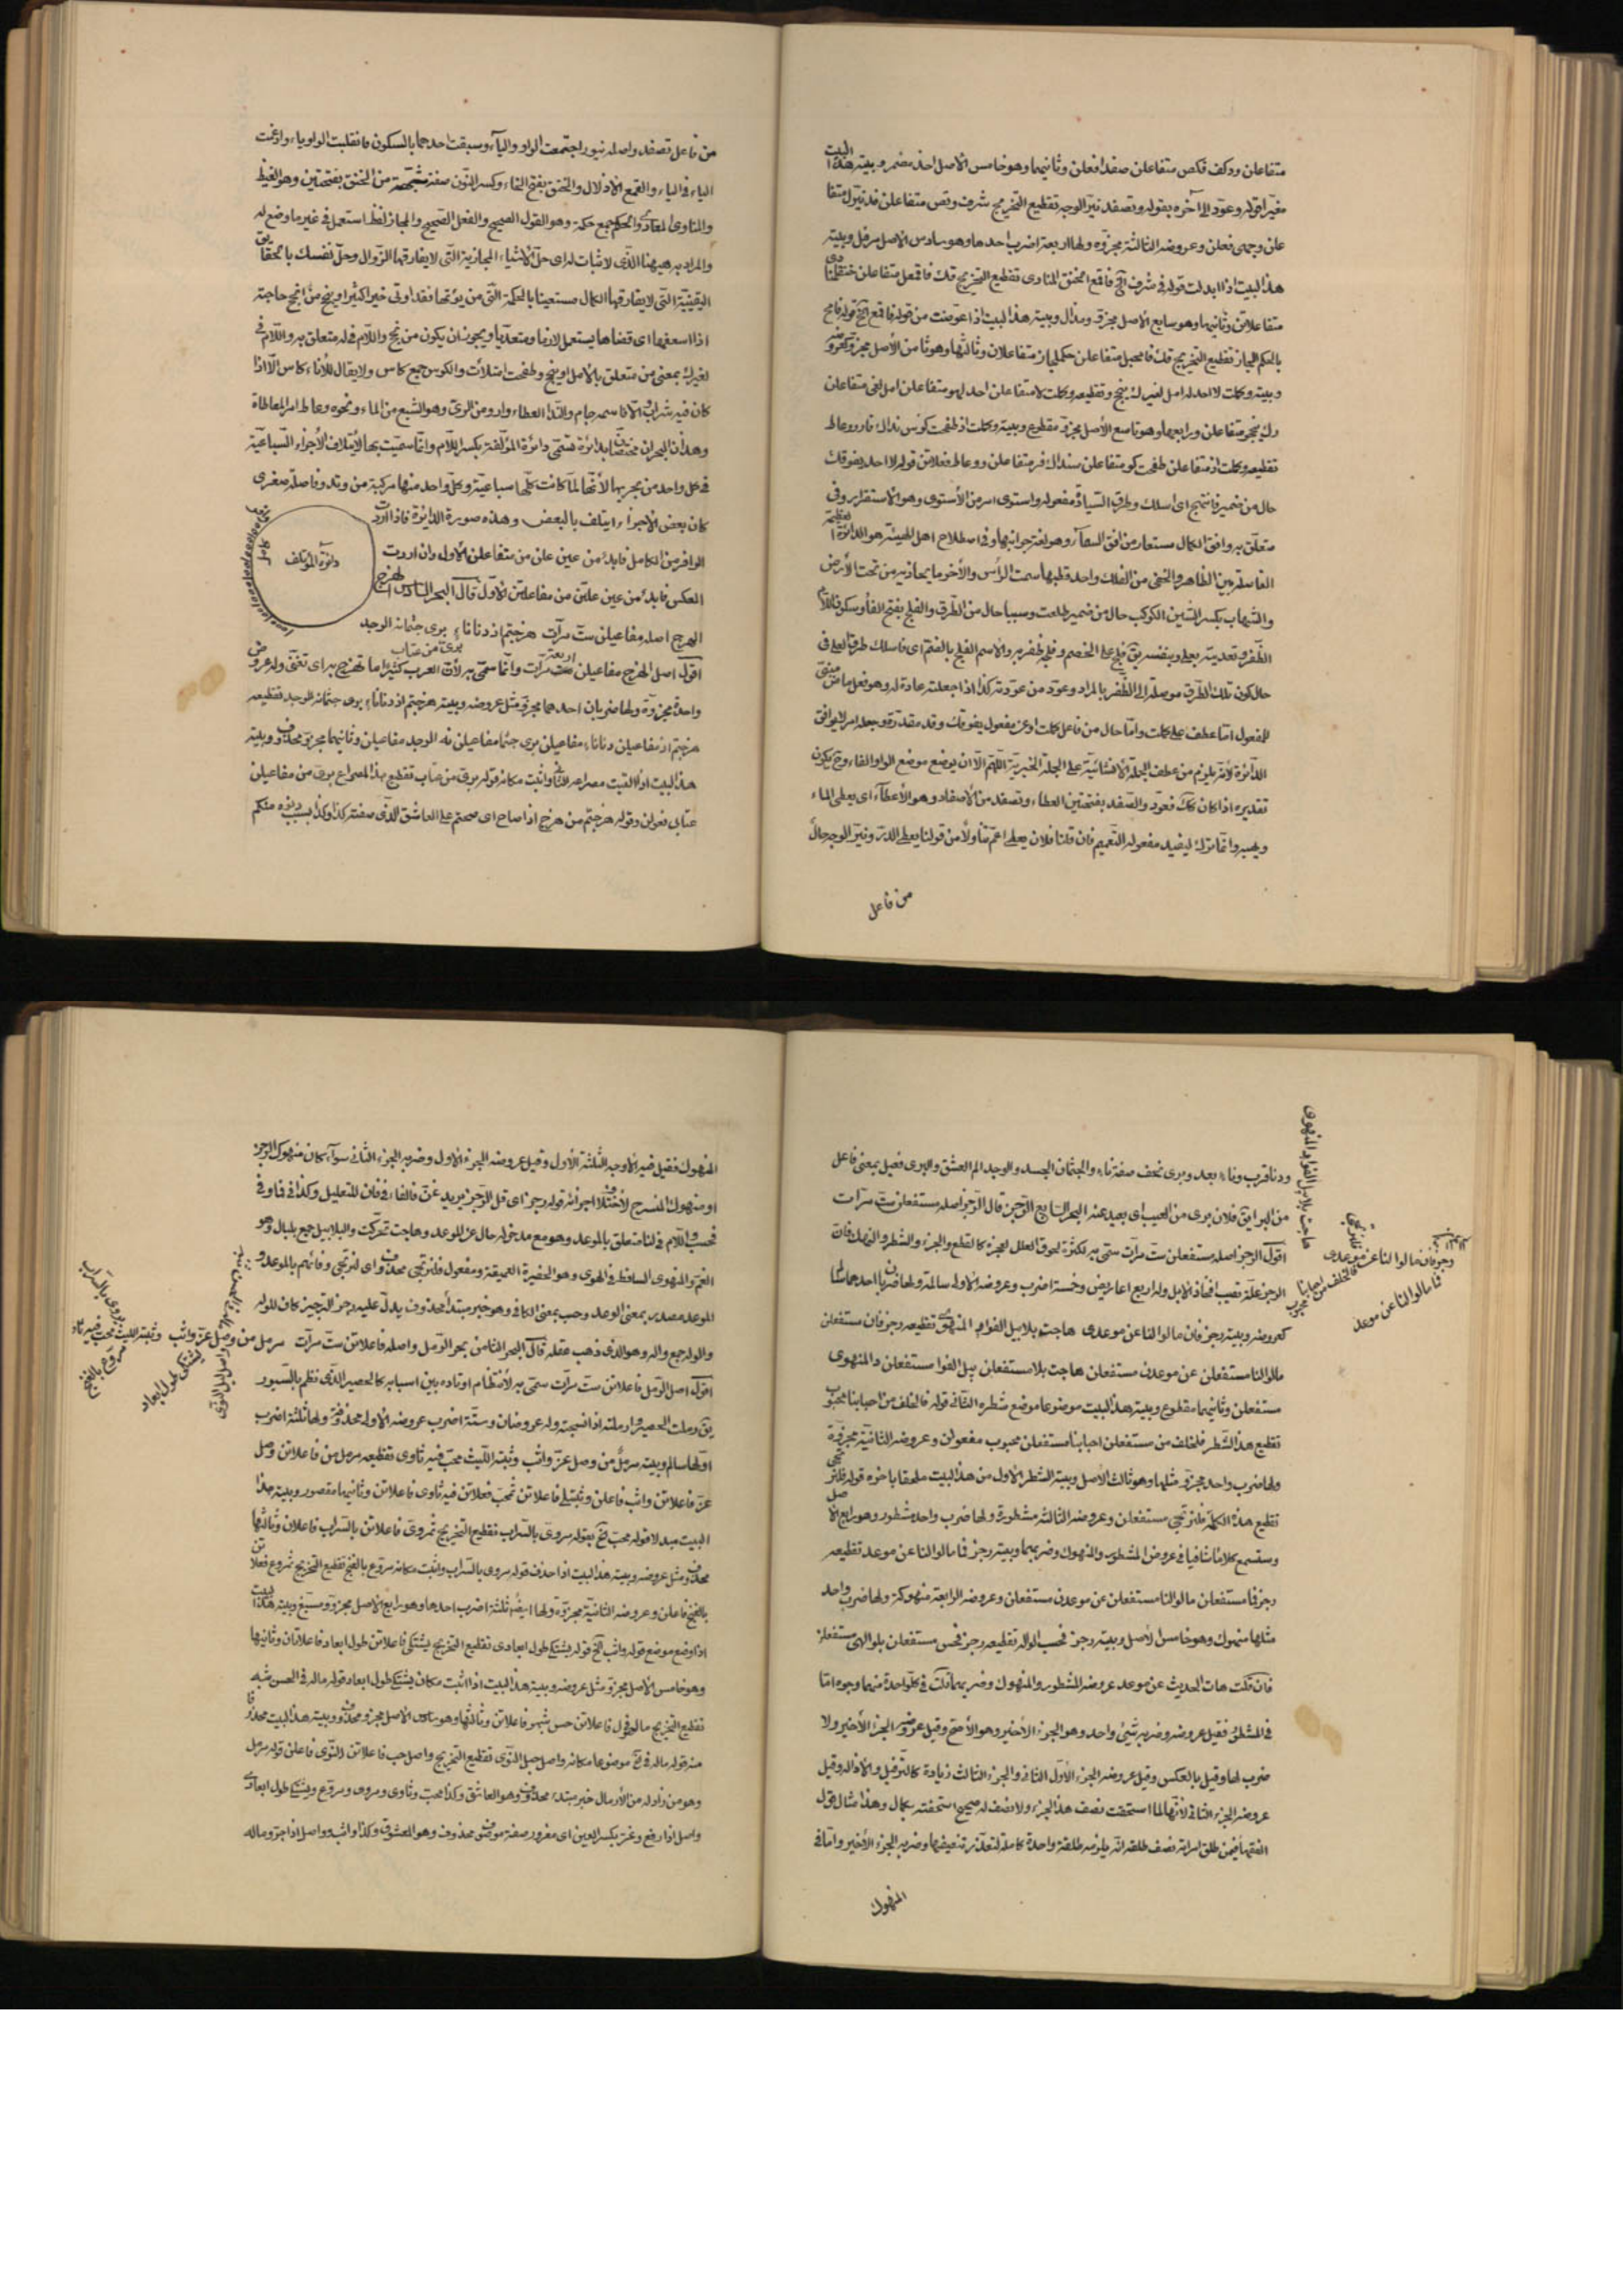 متفاعلن ووكف فكص متفاعلن صفدا فعلن وثانيهما وهو خامس الأصل احذ مضمر وبيته هذا البيت
مغيرا قوله وعود الى آخره بقوله وتصفد نيّر الوجه تقطيع التخريج شرف وتص متفاعلن فد نيّرل متفا
علن وجهى فعلن وعروضه الثالثة مجزوّة ولها اربعة اضرب احدها وهو سادس الأصل مرفل وبيته
هذا البيت اذا ابدلت قوله فى شرف الخ فاقمع الخنق المناوى تقطيع التخريج
متفاعلاتن وثانيها وهو سابع الأصل مجزوّ ومذال وبيته هذا البيت اذا عوضت من قوله فاقمع الخ قوله
بالحكم المجاز تقطيع التخريج متفاعلن حكملمجاز متفاعلان وثالثها وهو ثامن الأصل مجزوّ كعروضه
وبيته وكملت لا احد له امل لغيرك ينجح وتقطيعه وكملت لا متفاعلن احد لهو متفاعلن امل لغى متفاعلن
رك ينجحو متفاعلن ورابعها وهو تاسع الأصل مجزوّ مقطوع وبيته وكملت اذ طفحت كؤس نداك فارو وعاط
تقطيعه وكملت اذ متفاعلن طفحت كؤ متفاعلن سنداك فر متفاعلن وو عاط فعلاتن قوله لا احد يفوقك
حال من ضمير فانتهج اى اسلك وطرق السيادة مفعوله واستوى امر من الأستوى وهو الاستقرار وفى
متعلق به وافق الكمال مستعار من افق السماء وهو لغة جوانبها وفى اصطلاح اهل الهيئة هو الدائرة العظيمة
الفاصلة بين الظاهر والخفى من الفلك واحد قطبها سمت الرأس والآخر ما يحاذيه من تحت الأرض
والشهاب بكسر الشين الكوكب حال من ضمير طلعت وسببا حال من الطرق والفلج بفتح الفاء وسكون اللام
الظفر وتعديته بعلى وبنفسه يق فلج على الخصم وفلجه ظفر به والاسم الفلج بالضم اى فاسلك طرق العلى فى
حال كون تلك الطرق موصلة الى الظفر بالمراد وعود من عودته كذا اذا جعلته عادة له وهو فعل ماض مبنى
للمفعول امّا عطف على كملت وامّا حال من فاعل كملت او من مفعول يفوقك وقد مقدّرة وجعله امرا لا يوافق
الدائرة لأنه يلزم من عطف الجملة الأنشائية على الجملة الخبرية اللهم الا ان يوضع موضع الواو الفاء وح يكون
تقديره اذا كان كك فعود والصفد بفتحتين العطاء وتصفد من الأصفاد وهو الأعطاء اى يعطى الماء
وغيره وانما ترك ليفيد مفعوله التعميم فان قلنا فلان يعطى اعمّ تناولا من قولنا يعطى الدر ونيّر الوجه حال
من فاعل
من فاعل تصفد واصله نيور اجتمعت الواو والياء وسبقت احدهما بالسكون فانقلبت الواو ياء وادغمت
الياء فى الياء والقمع الأذلال والخنق بفتح الخاء وكسر النون صفة مشبهة من الخنق بفتحتين وهو الغيظ
والمناوى المعادى والحكم جمع حكمة وهو القول الصحيح والفعل الصحيح والمجاز لفظ استعمل فى غير ما وضع له
والمراد به ههنا الذى لا ثبات له اى حل الأشياء المجازية التى لا يفارقها الزوال وحل نفسك بالحقايق
اليقينية التى لا يفارقها الكمال مستعينا بالحكمة التى من يؤتها فقد اوتى خيرا كثيرا وينجح من انجح حاجته
اذا اسعفها اى قضاها يستعمل لازما ومتعديا ويجوز ان يكون من نجح واللام فى له متعلق به واللام فى
لغيرك بمعنى من متعلق بالأمل او ينجح وطفحت امتلأت والكوس جمع كاس ولا يقال للأناء كاس الا اذا
كان فيه شراب والا فاسمه جام والندا العطاء وارو من الرىّ وهو الشبع من الماء ونحوه وعاط امر المعاطاة
وهذان البحران مختصّان بدائرة تسمّى دائرة المؤتلفة بكسر اللام وانما سميت بها لأيتلاف الأجزاء السباعية
فى كل واحد من بحريها لأنها لما كانت كلها سباعية وكل واحد منها مركبة من وتد وفاصلة صغرى
كان بعض الأجزاء ايتلف بالبعض وهذه صورة الدائرة فاذا اردت
الوافر من الكامل فابدء من عين علن من متفاعلن الأول وان اردت
العكس فابدء من عين علتن من مفاعلتن الأول قال البحر السادس الهزج
دائرة المؤتلف
كامل
الهزج اصله مفاعيلن ستّ مرّات هزجتم اذ دنا ناء برى جثمانه الوجد
برىّ من عتاب
اقول اصل الهزج مفاعيلن ستّ مرّات وانما سمى به لأن العرب كثيرا ما تهزج به اى تغنّى وله عروض
واحدة مجزوّة ولها ضربان احدهما مجزوّ مثل عروضه وبيته هزجتم اذ دنا ناء برى جثمانه الوجد تقطيعه
هزجتم اذ مفاعيلن دنا ناء مفاعيلن برى جثما مفاعيلن نه الوجد مفاعيلن وثانيهما مجزوّ محذوف وبيته
هذا البيت اذا القيت مصراعه الثانى واثبت مكانه قوله برىّ من عتاب تقطيع هذا المصراع برىّ من مفاعيلن
عتابى فعولن وقوله هزجتم من هزج اذا صاح اى صحتم على العاشق الذى صفته كذا وكذا بسبب دنوّه منكم
ودنا قرب وناء بعد وبرى نحف صفة ناء والجثمان الجسد والوجد الم العشق والبرى فعيل بمعنى فاعل
من البرء يق فلان برى من العيب اى بعيد عنه البحر السابع الرجز قال الرجز اصله مستفعلن ستّ مرّات
اقول الرجز اصله مستفعلن ستّ مرّات سمّى به لكثرة لحوق العلل لجزئه كالقطع والجزء والشطر والنهك فان
الرجز علّة تصيب افخاذ الأبل وله اربع اعاريض وخمسة اضرب وعروضه الأولى سالمة ولها ضربان احدهما سالم
كعروضه وبيته رجز فان مالوا لنا عن موعدى هاجت بلابيل الفؤاد المنهوى تقطيعه رجز فان مستفعلن
مالو لنا مستفعلن عن موعدى مستفعلن هاجت بلا مستفعلن بيل الفؤا مستفعلن د المنهوى
مستفعلن وثانيهما مقطوع وبيته هذا البيت موضوعا موضع شطره الثانى قوله فالخلف من احبابنا محبوب
تقطيع هذا الشطر فلخلف من مستفعلن احبابنا مستفعلن محبوب مفعولن وعروضه الثانية مجزوّة
ولها ضرب واحد مجزوّ مثلها وهو ثالث الأصل وبيته الشطر الأول من هذا البيت ملحقا باخره قوله فلنرتجى
تقطيع هذه الكلمة فلنرتجى مستفعلن وعروضه الثالثة مشطورة ولها ضرب واحد مشطور وهو رابع الأصل
وستسمع كلاما شافيا فى عروض المشطور والمنهوك وضربهما وبيته رجز فا مالوا لنا عن موعد تقطيعه
رجز فا مستفعلن مالو لنا مستفعلن عن موعدن مستفعلن وعروضه الرابعة منهوكة ولها ضرب واحد
مثلها منهوك وهو خامس الأصل وبيته رجز فحسب الواله تقطيعه رجز فحس مستفعلن بلوالهى مستفعلن
فان قلت هات الحديث عن موعد عروض المشطور والمنهوك وضربهما قلت فى كل واحدة منهما وجوه امّا
فى المشطور فقيل عروضه وضربه شئ واحد وهو الجزء الأخير وهو الأصح وقيل عروضه الجزء الأخير ولا
ضرب لها وقيل بالعكس وقيل عروضه الجزء الأول الثانى والجزء الثالث زيادة كالترفيل والأذالة وقيل
عروضه الجزء الثانى لأنها لما استحقت نصف هذا الجزء ولا نصف له صحيح استحقته بكمال وهذا مثال قول
الفقهاء فيمن طلق امراته نصف طلقة انه يلزمه طلقة واحدة كاملة لتعذر تنصيفها وضربه الجزء الأخير وامّا فى
المنهوك
هاجت بلابيل الفؤاد المنهوى
فلنرتجى
رجز فان مالوا لنا عن موعدى
فالخلف من احبابنا محبوب
فا مالوا لنا عن موعد
المنهوك فقيل فيه الأوجه الثلثة الأول وقيل عروضه الجزء الأول وضربه الجزء الثانى سواء كان منهوك الرجز
او منهوك المنسرح لأختلاف اجزائه قوله رجز اى قل الرجز يريد غنّ فالفاء فى فان للتعليل وكذا فى فا وفى
فحسب واللام فى لنا متعلق بالموعد وهو مع مدخوله حال عن الموعد وهاجت تحركت والبلابيل جمع بلبال وهو
الغم والمنهوى الساقط فى الهوى وهو الحفيرة العميقة ومفعول فلنرتجى محذوف اى لنرتجى وفائهم بالموعد و
الموعد مصدر بمعنى الوعد وحسب بمعنى الكافى وهو خبر مبتدأ محذوف يدل عليه رجز الترجيز كان للواله
والواله جمع واله وهو الذى ذهب عقله قال البحر الثامن بحر الرمل واصله فاعلاتن ستّ مرّات مرمل من وصل عزّ واثب وثبة الليث محبّ فيه ثاو
اقول اصل الرمل فاعلاتن ستّ مرّات سمّى به لأنتظام اوتاده بين اسبابه كالحصير الذى نظم بالسيور
يق رملت الحصير وارملته اذا نسجته وله عروضان وستة اضرب عروضه الأولى محذوفة ولها ثلثة اضرب
اولها سالم وبيته مرمل من وصل عزّ واثب وثبة الليث محبّ فيه ثاوى تقطيعه مرمل من فاعلاتن وصل
عزّ فاعلاتن واثب فاعلن وثبتلى فاعلاتن ث محبّ فعلاتن فيه ثاوى فاعلاتن وثانيها مقصور وبيته هذا
البيت مبدلا قوله محبّ الخ بقوله مروى بالسراب تقطيع التخريج ث مروى فاعلاتن بالسراب فاعلان وثالثها
محذوف مثل عروضه وبيته هذا البيت اذا حذف قوله مروى بالسراب واثبت مكانه مروّع بالفجع تقطيع التخريج ث مروّع فعلاتن
بالفجع فاعلن وعروضه الثانية مجزوّة ولها ايضا ثلثة اضرب احدها وهو رابع الأصل مجزوّ ومسبّغ وبيته هذا البيت
اذا وضع موضع قوله واثب الخ قوله يشتكى طول ابعادى تقطيع التخريج يشتكى فاعلاتن طول ابعاد فاعلاتان وثانيها
وهو خامس الأصل مجزوّ مثل عروضه وبيته هذا البيت اذا اثبت مكان يشتكى طول ابعاد قوله ماله فى الحسن شبه
تقطيع التخريج مالهو فل فاعلاتن حسن شبهو فاعلاتن وثالثها وهو سادس الأصل مجزوّ ومحذوف وبيته هذا البيت محذوفا
منه قوله ماله فى الخ موضوعا مكانه واصل حبل النوى تقطيع التخريج واصل حب فاعلاتن لالنوى فاعلن قوله مرمل
وهو من زاد له من الأرمال خبر مبتدء محذوف وهو العاشق وكذا محبّ وثاوى ومروى ومروّع ويشتكى طول ابعادى
واصل اذا رفع وعزّ بكسر العين اى مغرور صفة موصوف محذوف وهو المعشوق وكذا واثب وواصل اذا جرّ وماله
مروى بالسراب
مروّع بالفجع
يشتكى طول ابعاد
ماله فى الحسن شبه
واصل حبل النوى